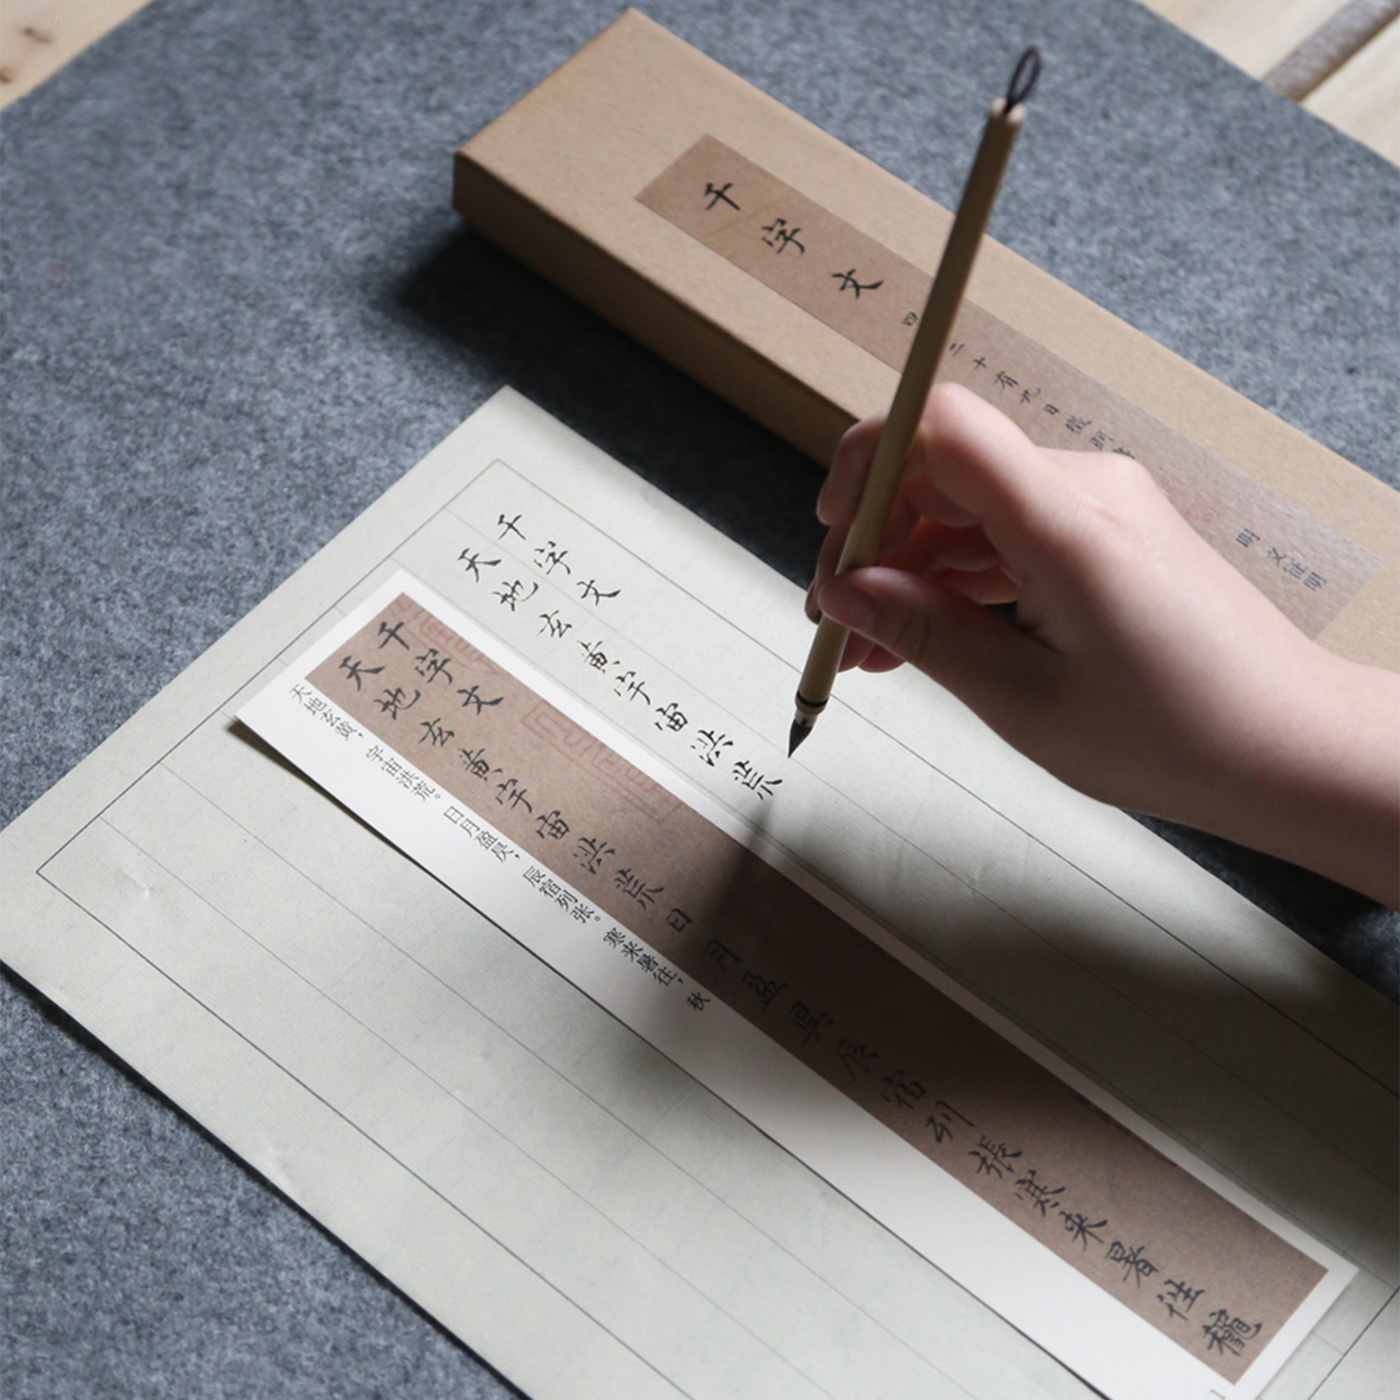 千字文
明 文征明
千字文
天地玄黄宇宙洪荒
千字文
天地玄黄宇宙洪荒日月盈昃辰宿列張寒来暑往
天地玄黄，宇宙洪荒。日月盈昃，辰宿列张。寒来暑往，秋